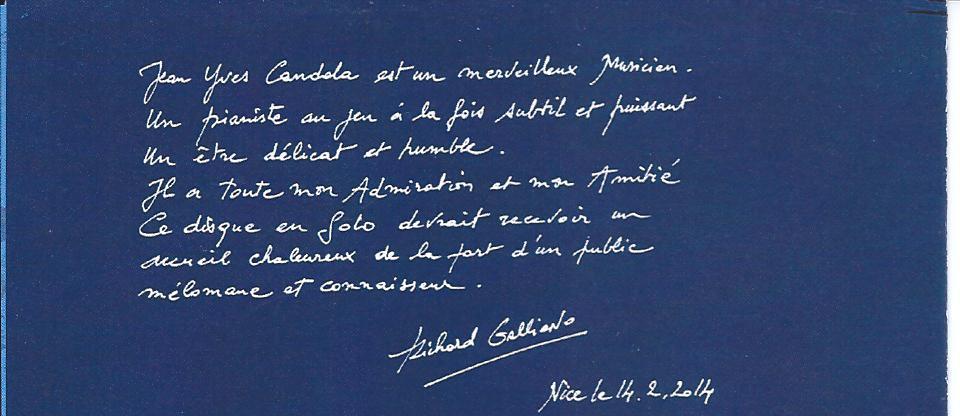 Jean Yves Candela est un merveilleux Musicien.
Un pianiste au jeu à la fois subtil et puissant
Un être délicat et humble.
Il a toute mon Admiration et mon Amitié
Ce disque en Solo devrait recevoir un
accueil chaleureux de la part d'un public
mélomane et connaisseur.
Richard Galliano
Nice le 14.2.2014